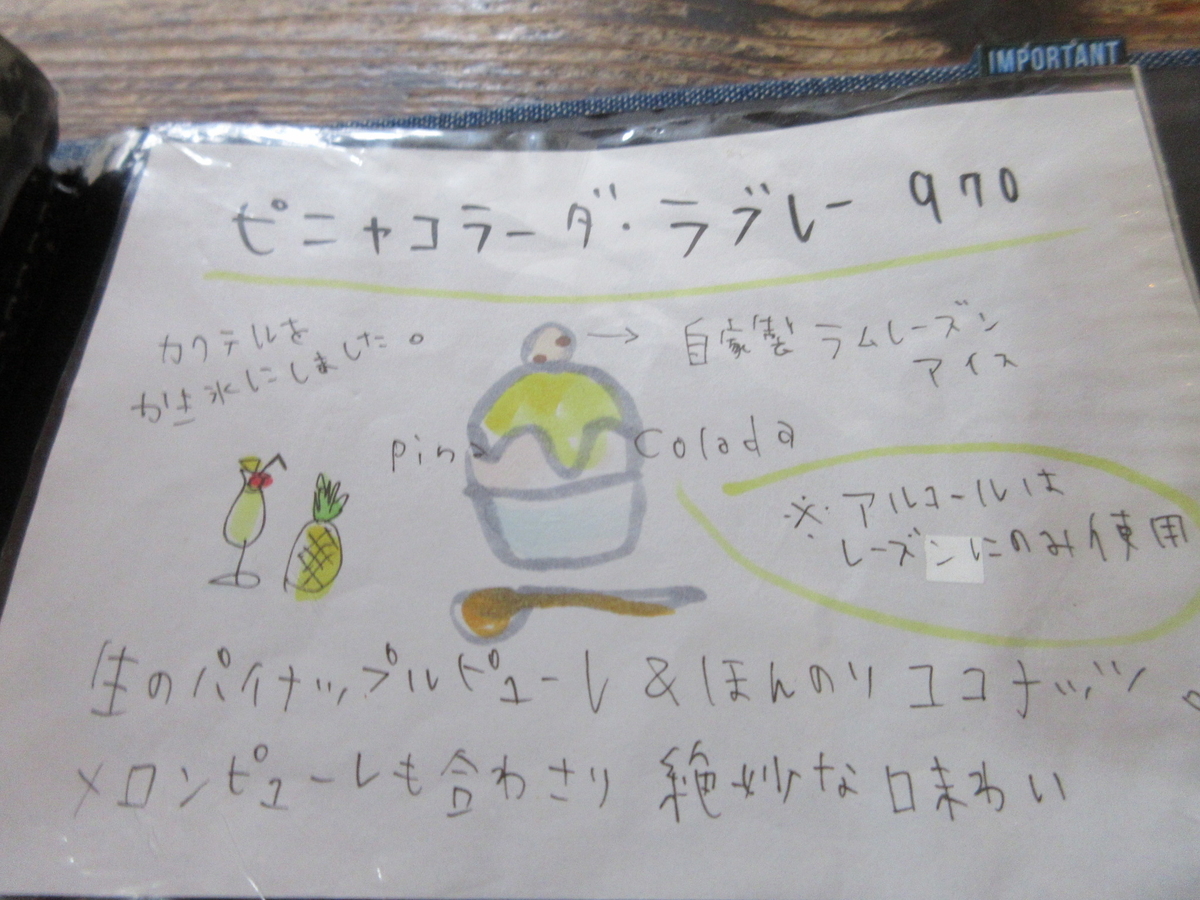 IMPORTANT
ピニャコラーダ・ラブレー 970
カクテルを
かき氷にしました。
→ 自家製 ラムレーズン
アイス
Pina Colada
※ アルコールは
レーズンにのみ使用
生のパイナップルピューレ & ほんのりココナッツ
メロンピューレも合わさり 絶妙な味わい